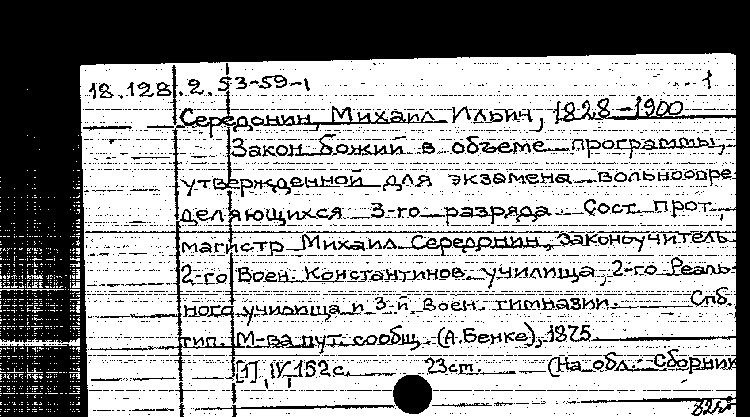 18.128.2.53-59-1 1
Середонин, Михаил Ильич, 1828-1900
Закон божий в объеме программы,
утвержденной для экзамена вольноопре
деляющихся 3-го разряда Сост. прот.,
магистр Михаил Середонин, законоучитель
2-го Воен. Константинов. училища, 2-го Реаль-
ного училища и 3-й Воен. гимназии. Спб.
тип. М-ва пут. сообщ. (А.Бенке), 1875.
[1], IV, 152 с. 23 см. (На обл.: Сборник